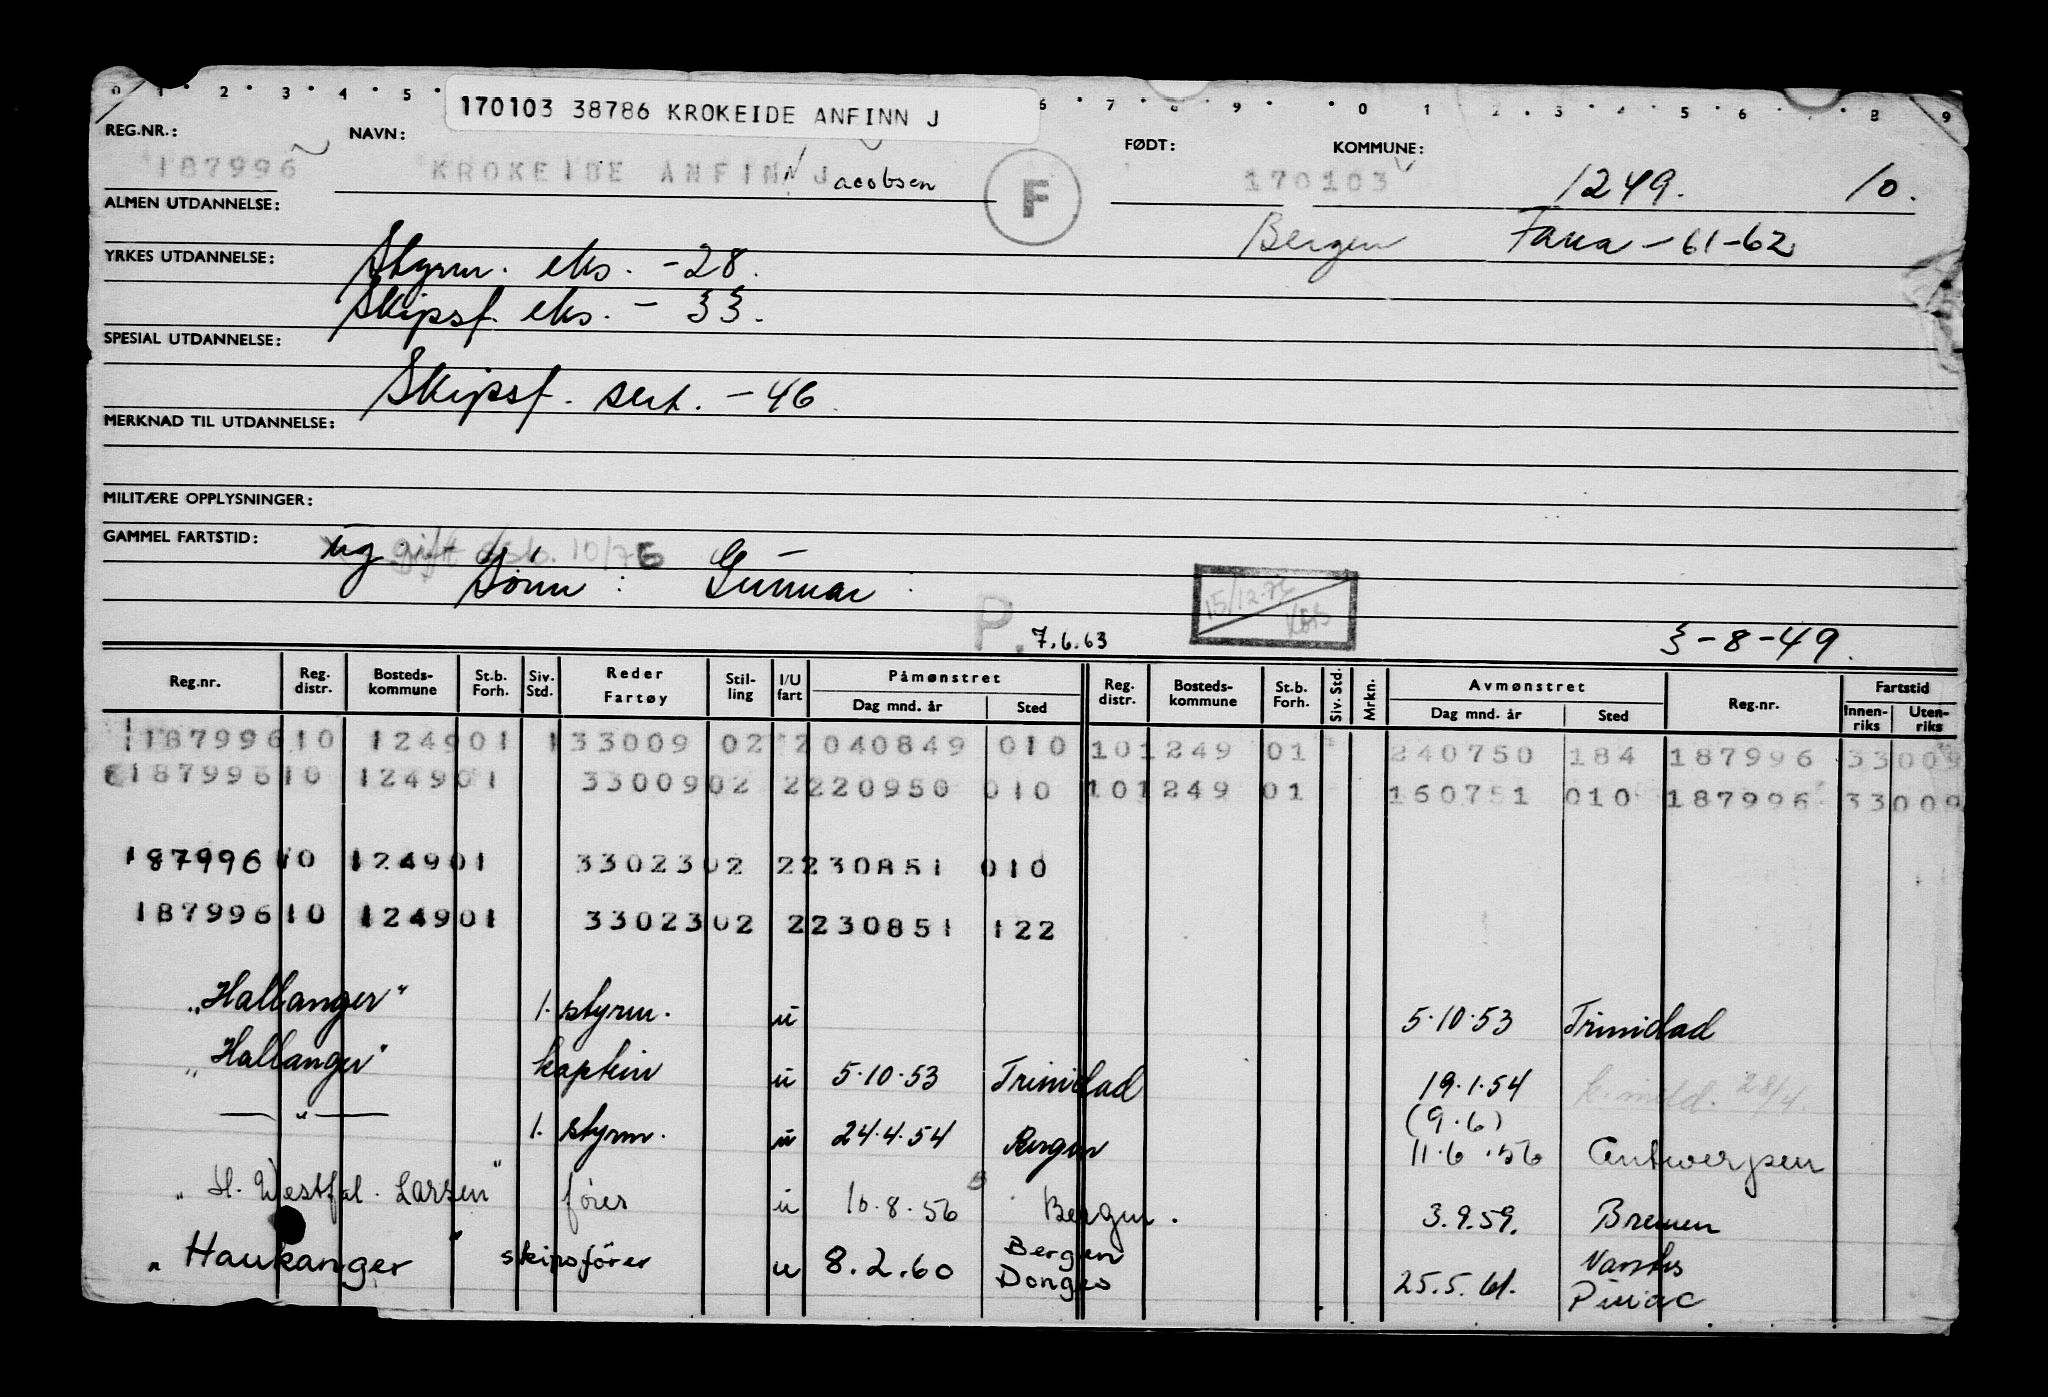 0 1 2 3 4 5 6 7 8 9 0 1 2 3 4 5 6 8 9
170103 38786 KROKEIDE ANFINN J
REG.NR.: NAVN: FØDT: KOMMUNE:
187996 KROKEIDE ANFINN Jacobsen F 170103 1249. 10.
ALMEN UTDANNELSE:
Bergen Fana -61-62
YRKES UTDANNELSE: Styrm. eks. -28.
Skipsf. eks. - 33.
SPESIAL UTDANNELSE:
Skipsf. sert. -46.
MERKNAD TIL UTDANNELSE:
MILITÆRE OPPLYSNINGER:
GAMMEL FARTSTID: ug gift 10/76
Sønn: Gunnar
15/12.
P. 7.6.63 3-8-49.
Reg.nr. Reg. distr. Bosteds-kommune St.b. Forh. Siv. Std. Reder Fartøy Stil-ling I/U fart Påmønstret Dag mnd. år Sted Reg. distr. Bosteds-kommune St.b. Forh. Siv. Std. Mrkn. Avmønstret Dag mnd. år Sted Reg.nr. Fartstid Innen-riks Uten-riks
187996 10 1249 01 1 33009 02 2 040849 010 10 1249 01 240750 184 187996 33009
187996 10 1249 01 33009 02 2 220950 010 10 1249 01 160751 010 187996 33009
187996 10 1249 01 33023 02 2 230851 010
187996 10 1249 01 33023 02 2 230851 122
"Hallanger" 1. styrm. u 5.10.53 Trinidad
"Hallanger" kaptein u 5.10.53 Trinidad 19.1.54 28/4.
— " — 1. styrm. u 24.4.54 Bergen (9.6) 11.6.56 Antwerpen
"H. Westfal. Larsen" fører u 10.8.56 Bergen. 3.9.59. Bremen
"Haukanger" skipsfører u 8.2.60 Bergen Donges 25.5.61.